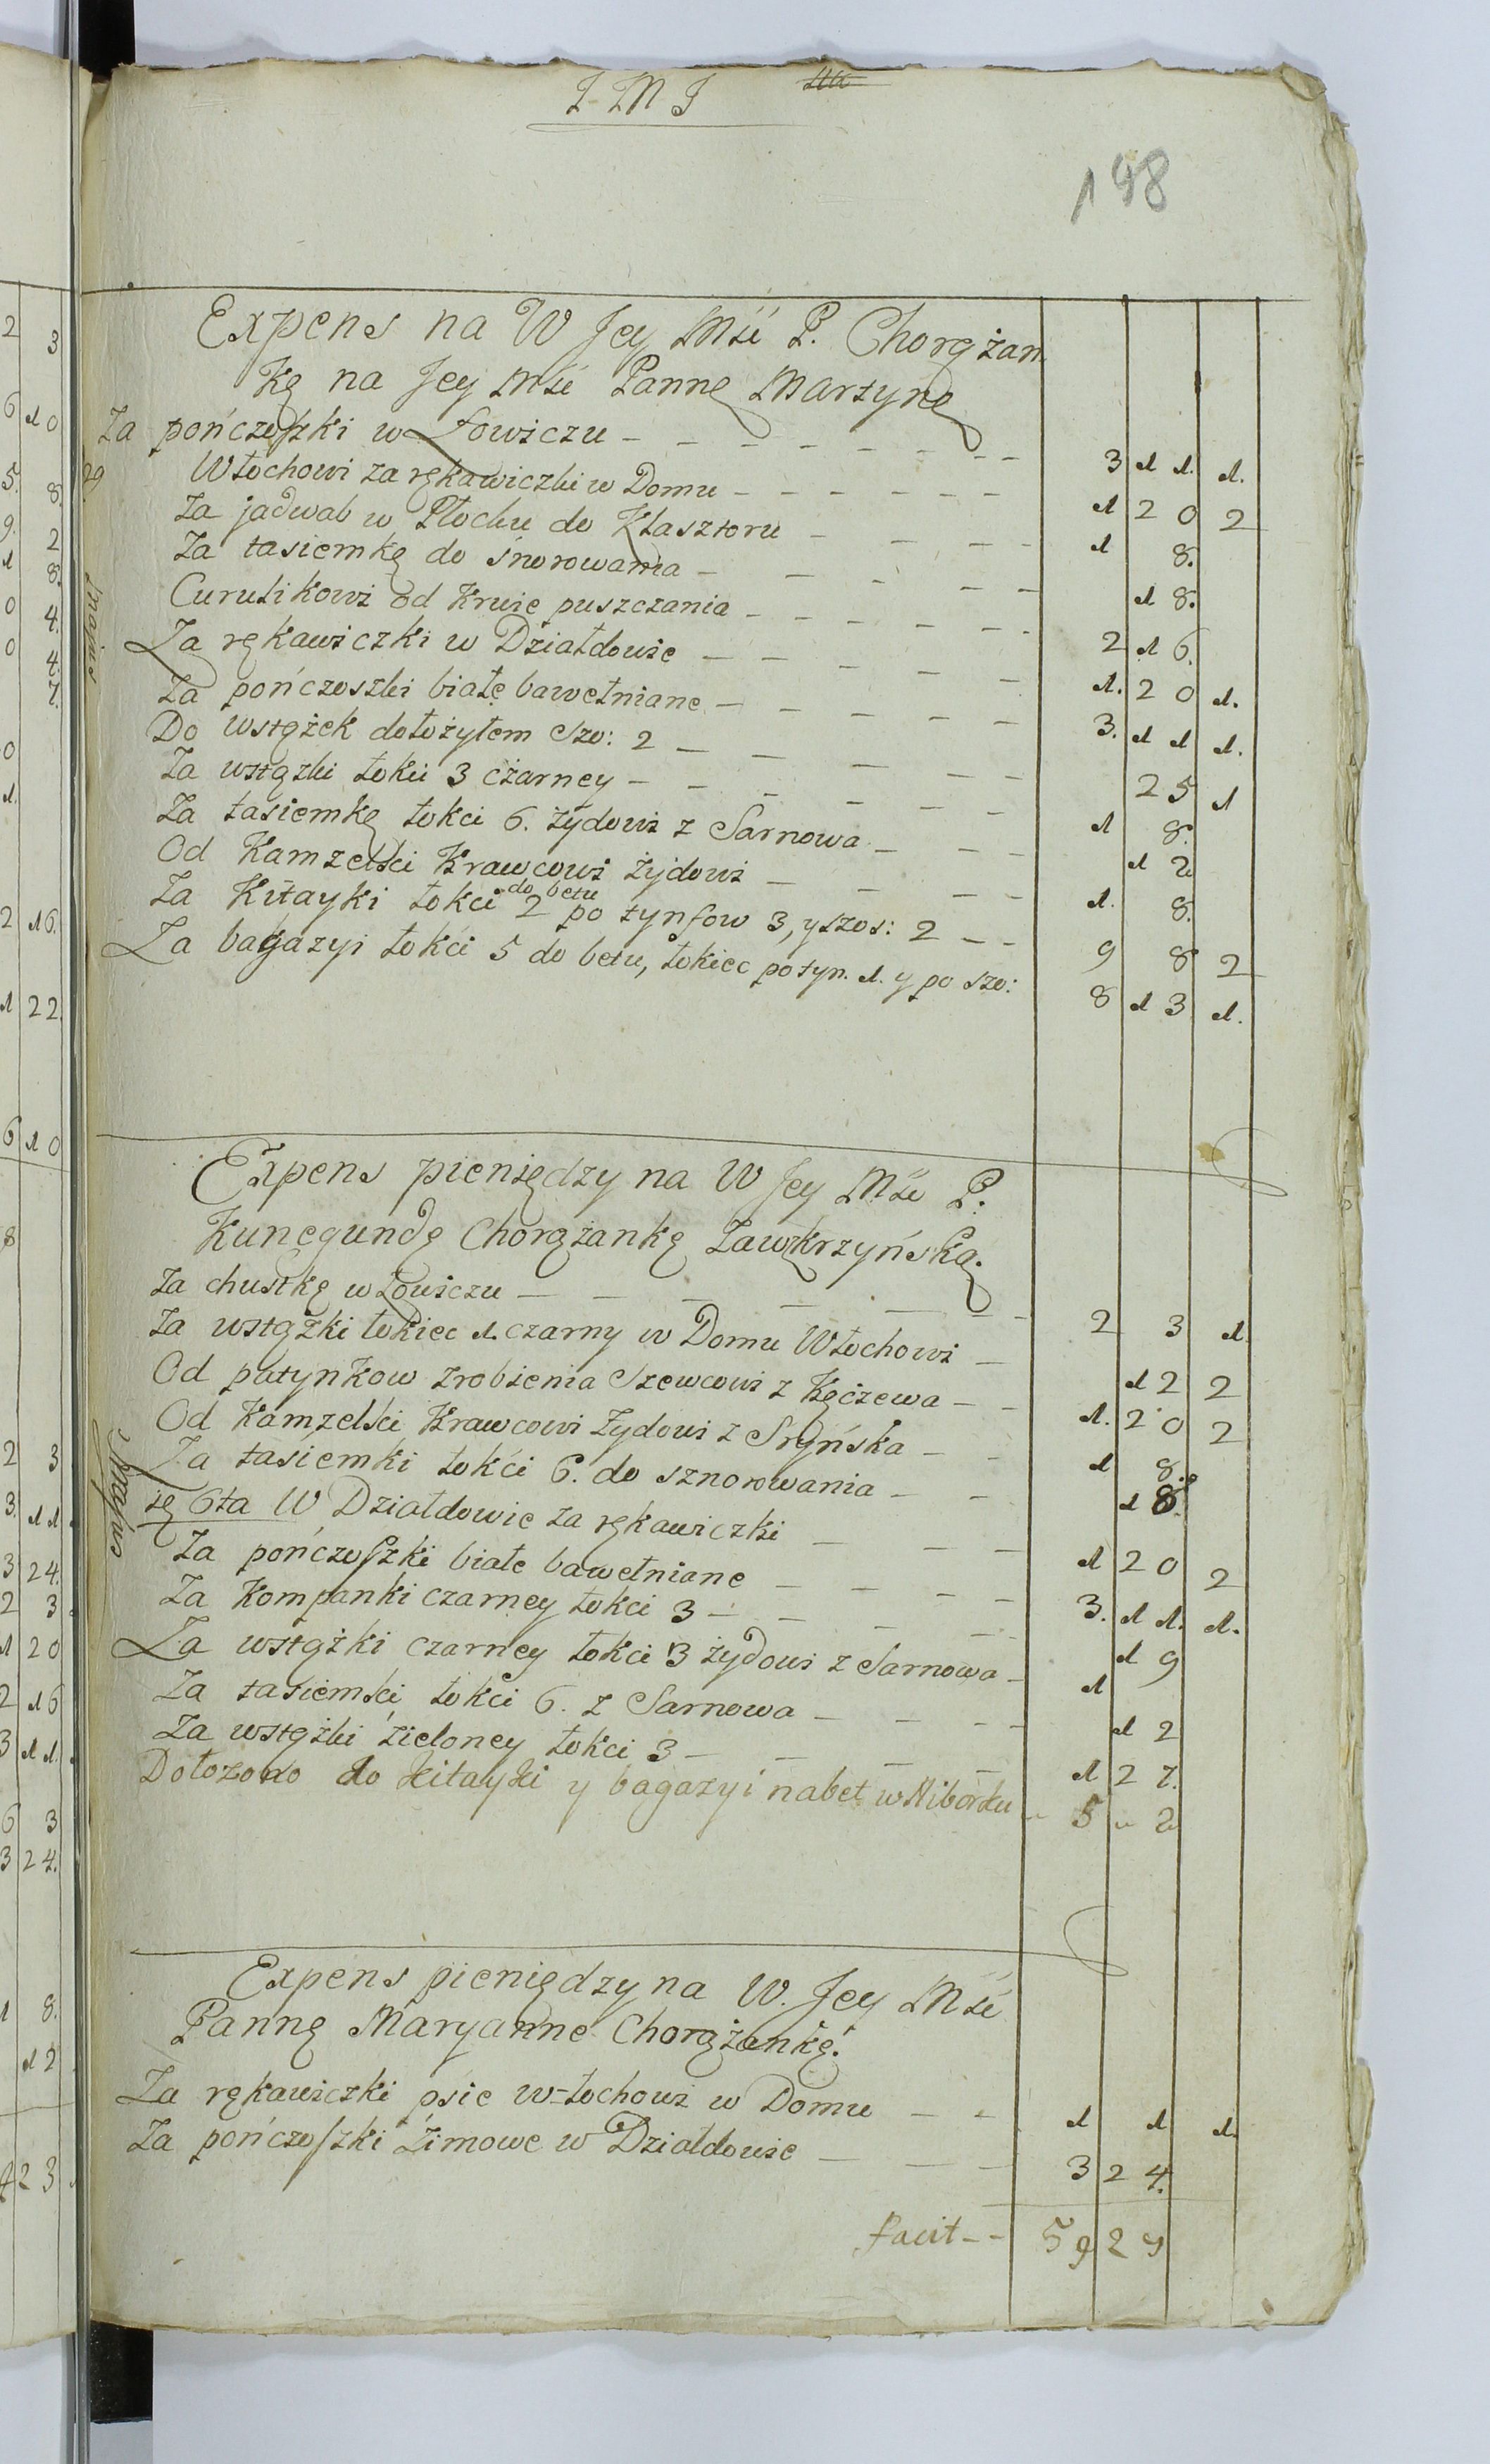 J M J
198
Expens na W Jey Mći P. Chorążan
kę na Jey Mći Pannę Martynę
Za pończoszki w Łowiczu - - - - - - - 3 1 1. 1.
Włochowi za rękawiczki w Domu - - - - - - 1 20 2
Za jadwab w Płocku do Klasztoru - - - - 1 8.
Za tasiemkę do snorowania - - - - - 18.
Cyrulikowi od krwie puszczania - - - - - - 2 16.
Za rękawiczki w Działdowie - - - - - - 1. 20 1.
Za pończoszki białe bawełniane - - - - - - 3. 1 1 1.
Do wstążek dołożyłem Szo: 2 - - - - - 25 1
Za wstążki łokci 3 czarney - - - - - - 1 8.
Za tasiemkę łokci 6. żydowi z Sarnowa - - - 12
Od Kamzelki Krawcowi żydowi - - - - 1. 8.
do betu
Za Kitayki łokci 2 po tynfow 3, y szos: 2 - - 9 8 2
Za bagazyi łokći 5 do betu, łokiec po tyn. 1. y po szo: 8 13 1.
Expens pieniędzy na W Jey Mći P.
Kunegundę Chorążankę Zawkrzyńską.
Za chustkę w Łowiczu - - - - - - 2 3 1
Za wstążki łokiec 1. czarny w Domu Włochowi - 12 2
Od patynkow zrobienia Szewcowi z Kęczewa - - 1. 20 2
Od Kamzelki Krawcowi Zydowi z Sryńska - - 1 8.
Za tasiemki łokći 6. do sznorowania - - 18.
6ta W Działdowie za rękawiczki - - - 1 20 2
Za pończoszki białe bawełniane - - - - 3. 1 1. 1.
Za Kompanki czarney łokci 3 - - - - 19
Za wstążki czarney łokci 3 żydowi z Sarnowa - 1
Za tasiemki łokci 6. z Sarnowa - - - - 12
Za wstężki zieloney łokci 3 - - - - 1 27.
Dołożono do kitayki y bagazyi na bet w Niborku - 5 - 2
Expens pieniędzy na W. Jey Mći
Pannę Maryannę Chorążankę.
Za rękawiczki psie Włochowi w Domu - - 1 1 1.
Za pończoszki Zimowe w Działdowie - - - 3 24.
facit - - 59 29